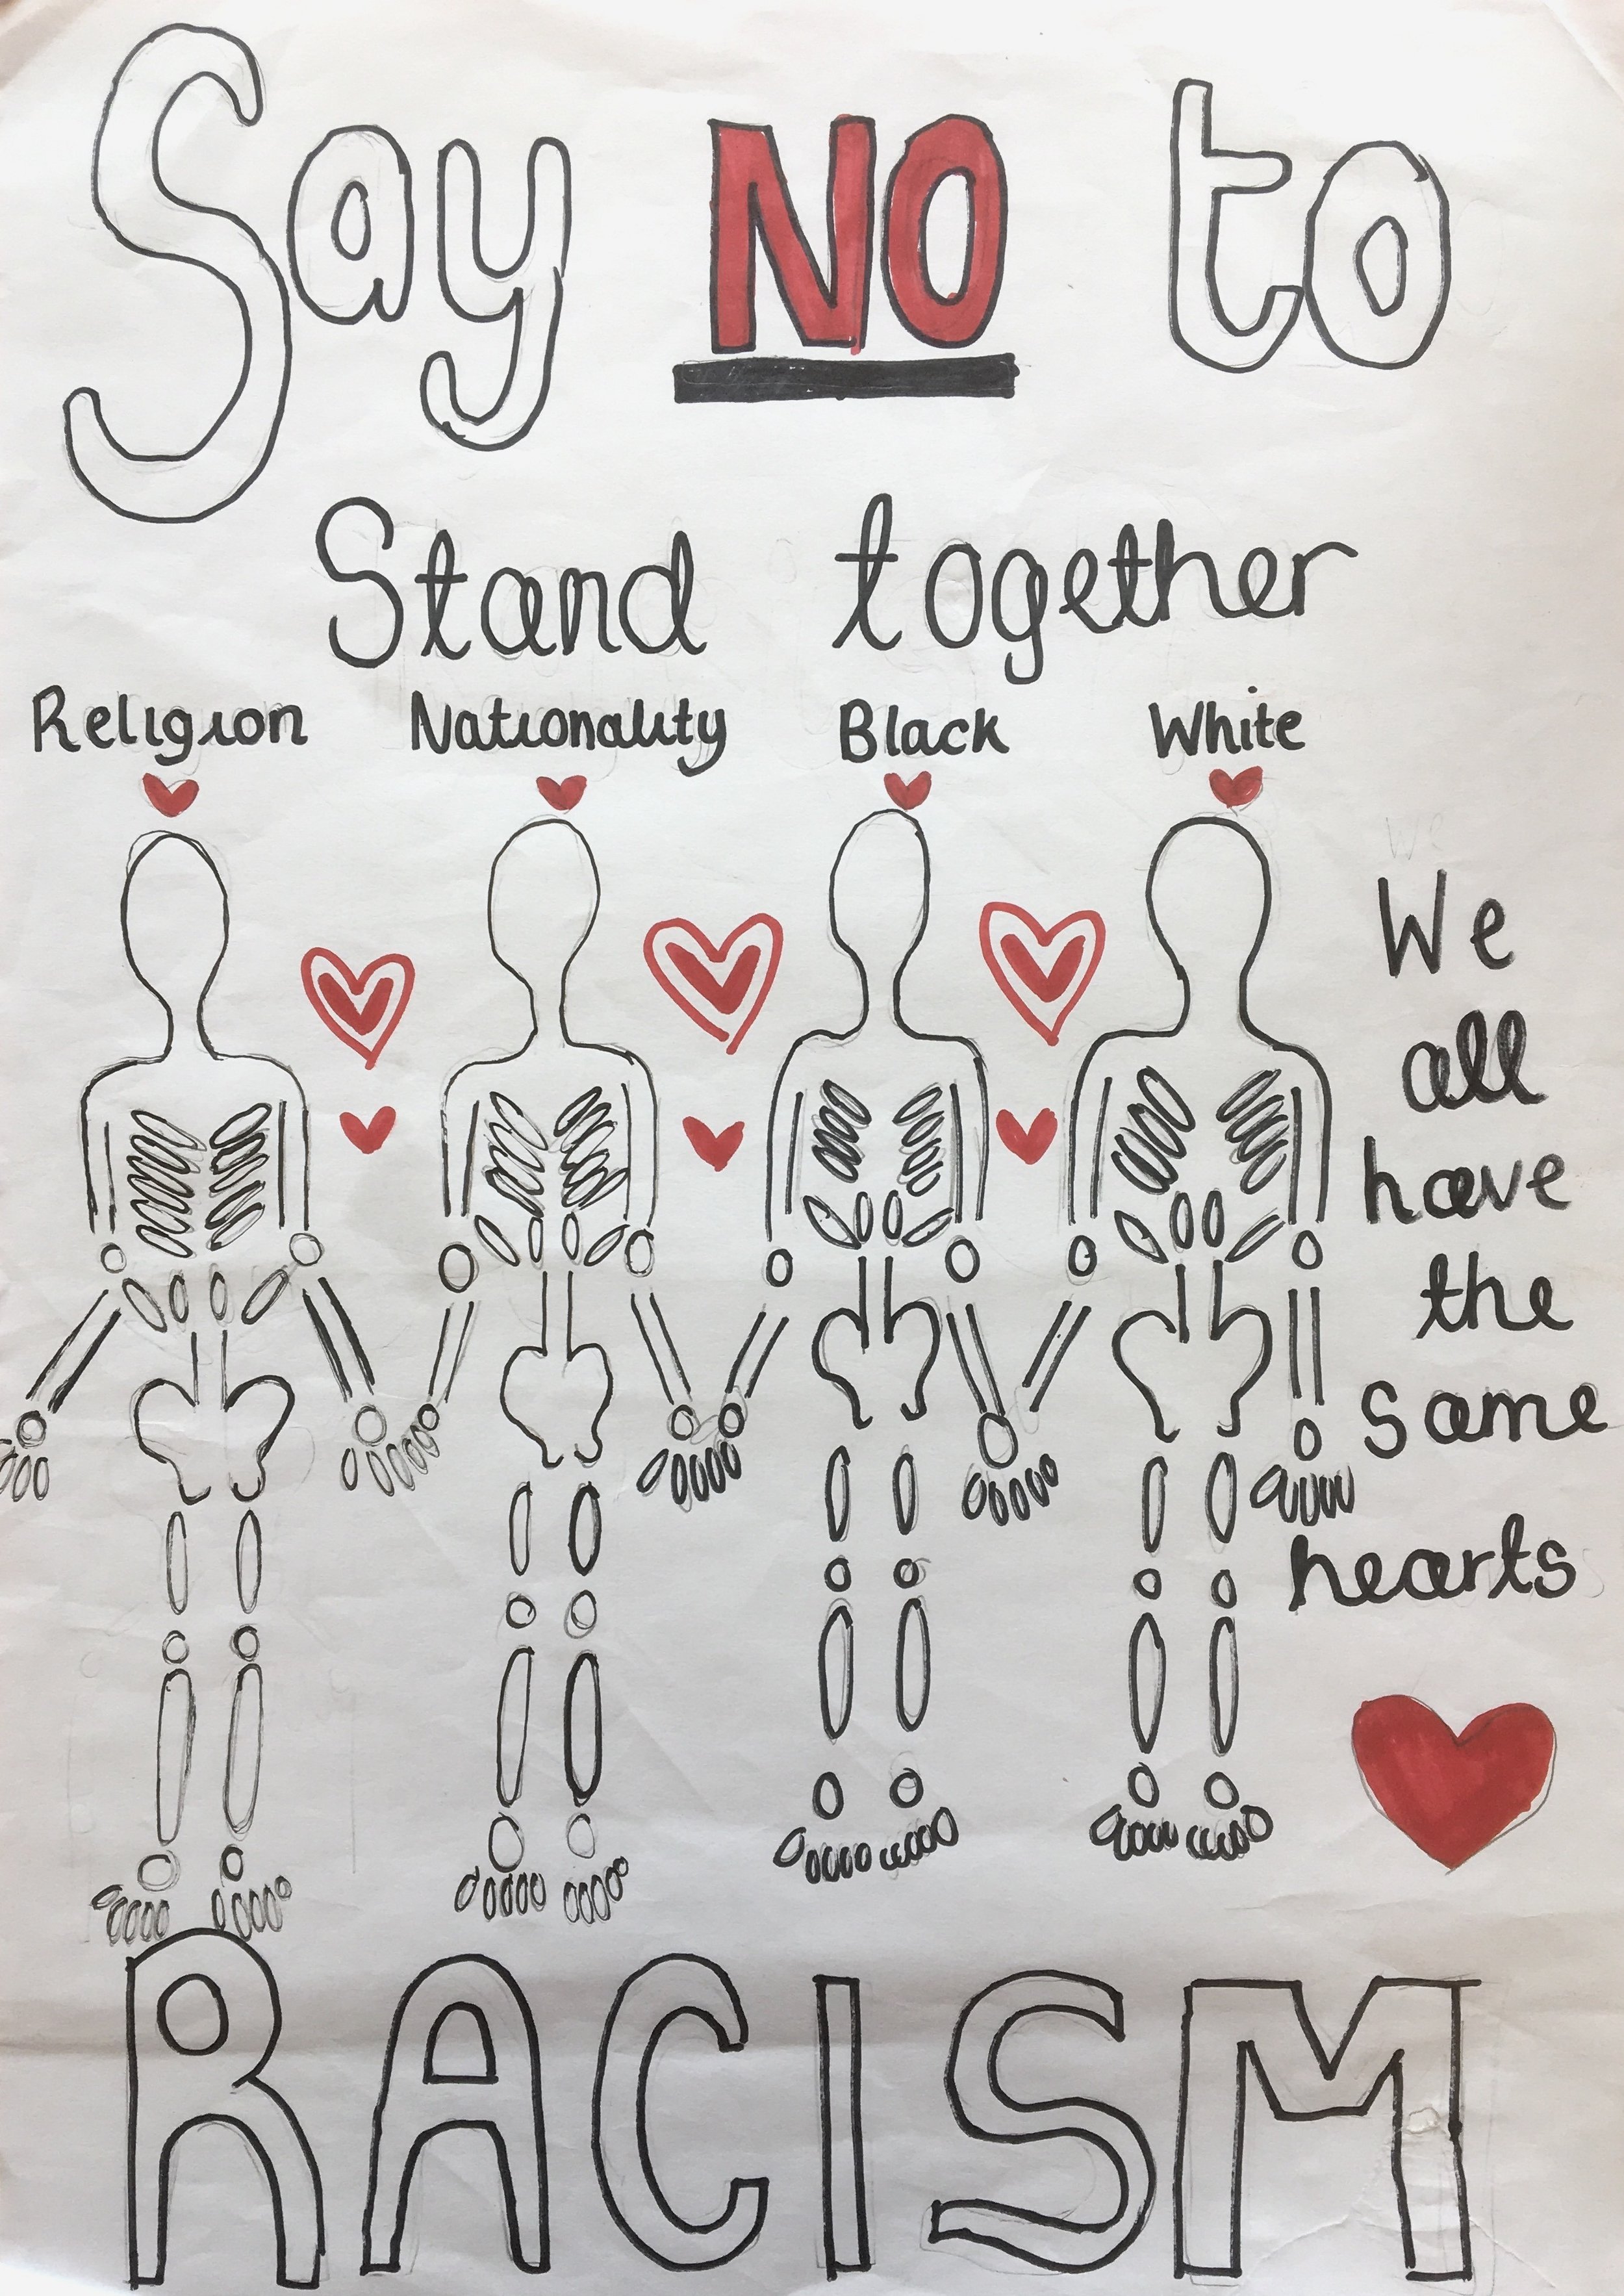 Say NO to
Stand together
Religion Nationality Black White
We
all
have
the
same
hearts
RACISM